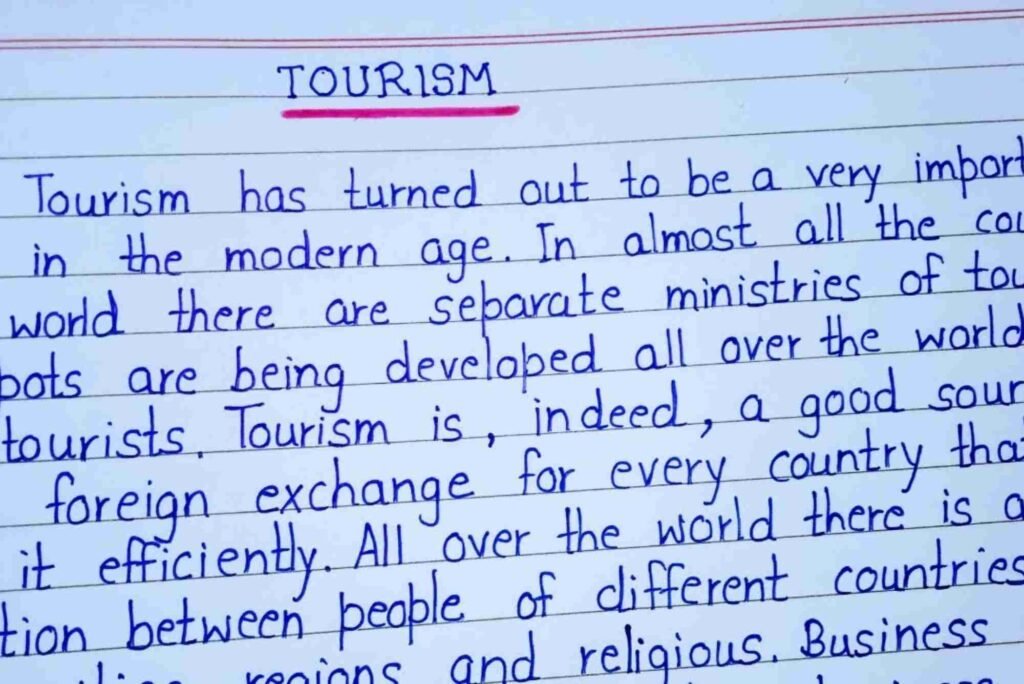 TOURISM
Tourism has turned out to be a very import
in the modern age. In almost all the cou
world there are separate ministries of tou
pots are being developed all over the world
tourists. Tourism is, indeed, a good sour
foreign exchange for every country tha
it efficiently. All over the world there is a
tion between people of different countries
regions and religious. Business